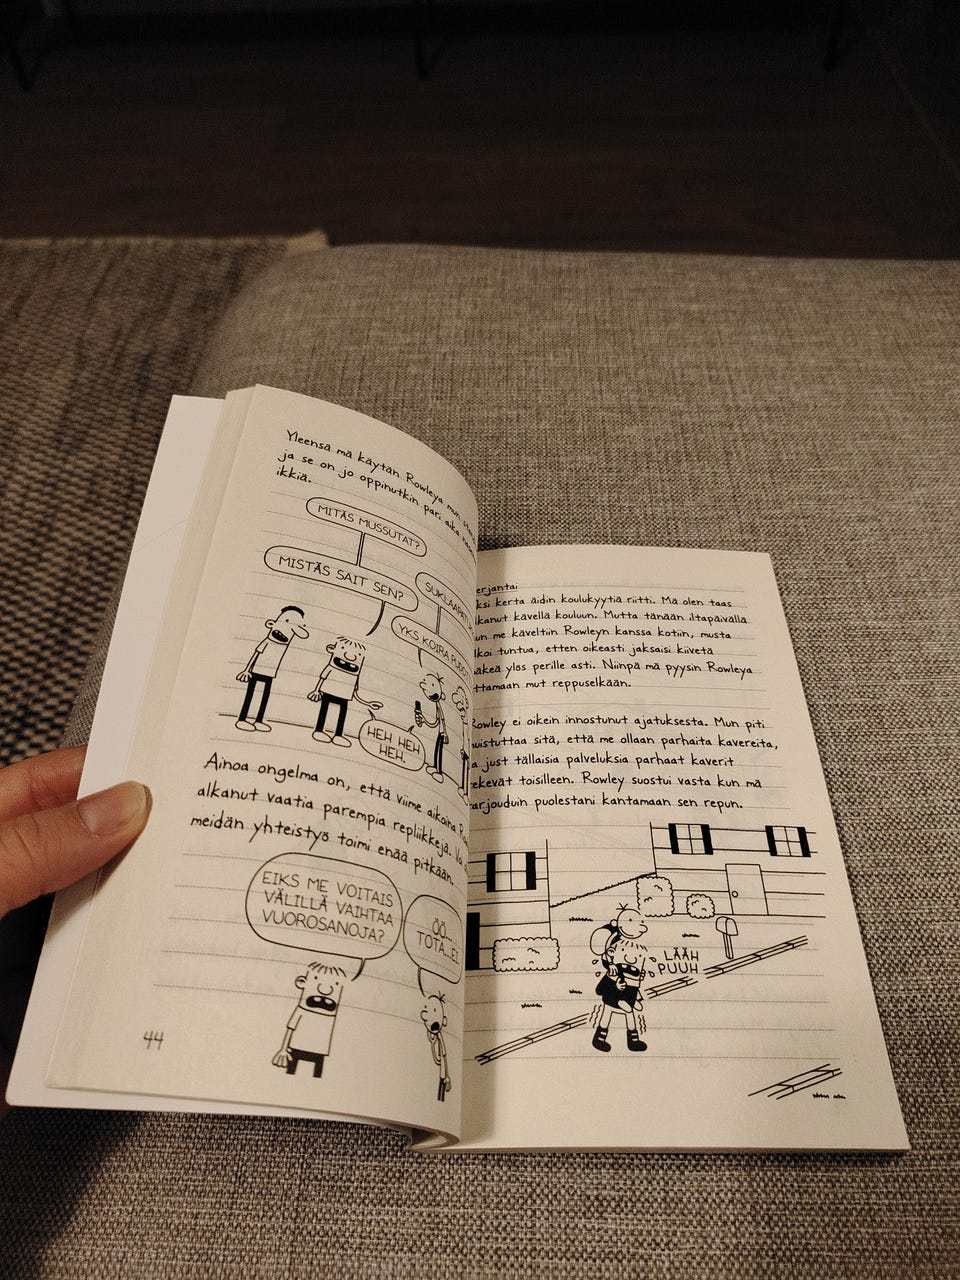 Yleensä mä käytän Rowleya mun
ja se on jo oppinutkin pari aika
ikkiä.
MITÄS MUSSUTAT?
MISTÄS SAIT SEN?
YKS KOIRA
HEH HEH
HEH.
Ainoa ongelma on, että viime aikoina
alkanut vaatia parempia repliikkejä.
meidän yhteistyö toimi enää pitkään.
EIKS ME VOITAIS
VÄLILLÄ VAIHTAA
VUOROSANOJA?
ÖÖ...
TOTA...EI.
44
erjantai
ksi kerta äidin koulukyytiä riitti. Mä olen taas
lkanut kävellä kouluun. Mutta tänään iltapäivällä
un me käveltiin Rowleyn kanssa kotiin, musta
lkoi tuntua, etten oikeasti jaksaisi kiivetä
äkeä ylös perille asti. Niinpä mä pyysin Rowleya
ttamaan mut reppuselkään.
Rowley ei oikein innostunut ajatuksesta. Mun piti
uistuttaa sitä, että me ollaan parhaita kavereita,
a just tällaisia palveluksia parhaat kaverit
ekevät toisilleen. Rowley suostui vasta kun mä
arjouduin puolestani kantamaan sen repun.
LÄÄH
PUUH